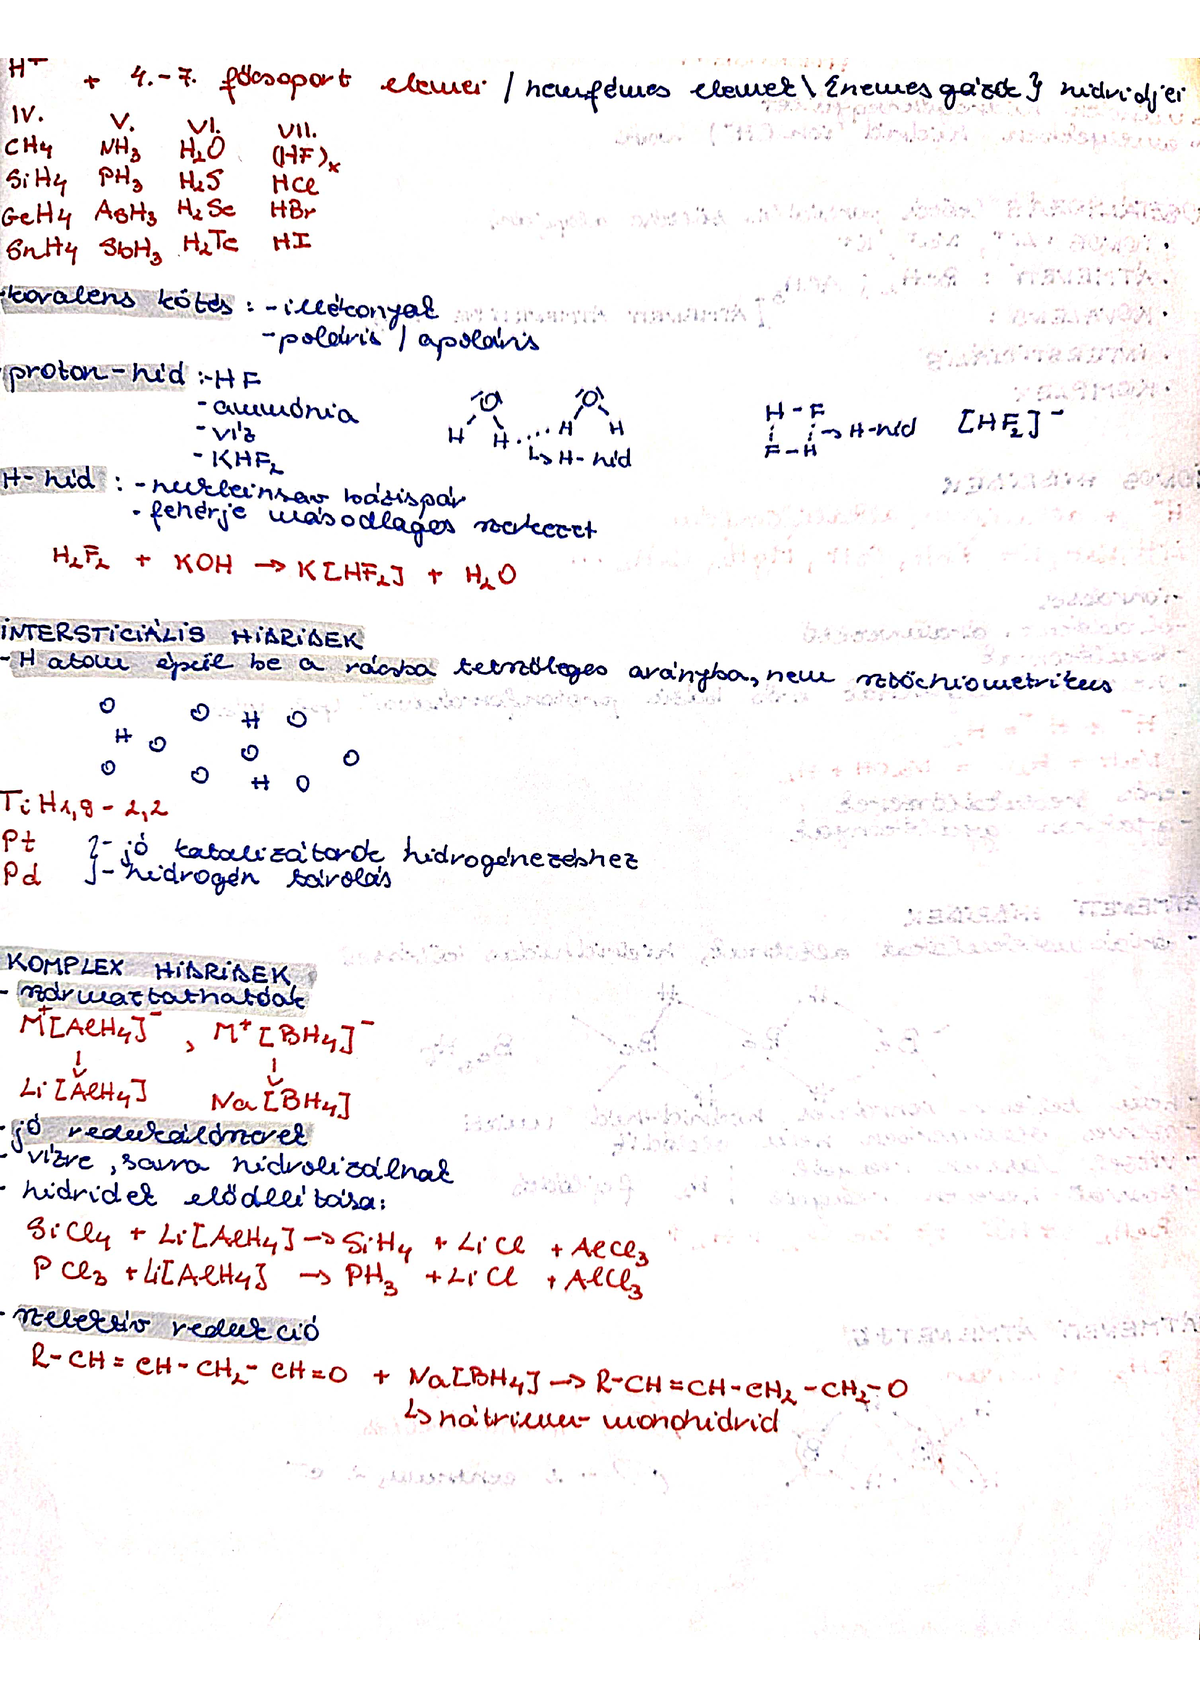 H⁺ + 4.-7. főcsoport elemei / nemfémes elemek \ {nemes gázok} hidridjei
IV. V. VI. VII.
CH4 NH3 H2O (HF)x
SiH4 PH3 H2S HCl
GeH4 AsH3 H2Se HBr
SnH4 SbH3 H2Te HI
kovalens kötés : - illékonyak
- poláris / apoláris
proton-híd : - HF
- ammónia
- víz
- KHF2
H H H H
O O
↳ H-híd
H-F
F-H
→ H-híd [HF2]⁻
H-híd : - nukleinsav bázispár
- fehérje másodlagos szerkezet
H2F2 + KOH → K[HF2] + H2O
INTERSTICIÁLIS HIDRIDEK
- H atom épül be a rácsba tetszőleges arányba, nem sztöchiometrikus
O O H O
H O O O
O O H O
TiH1,8 - 2,2
Pt } - jó katalizátorok hidrogénezéshez
Pd } - hidrogén tárolás
KOMPLEX HIDRIDEK
- származtathatóak
M⁺[AlH4]⁻ , M⁺[BH4]⁻
↓ ↓
Li[AlH4] Na[BH4]
- jó redukálószerek
- vízre, savra hidrolizálnak
- hidridek előállítása:
SiCl4 + Li[AlH4] → SiH4 + LiCl + AlCl3
PCl3 + Li[AlH4] → PH3 + LiCl + AlCl3
- szelektív redukció
R-CH=CH-CH2-CH=O + Na[BH4] → R-CH=CH-CH2-CH2-O
↳ nátrium monohidrid